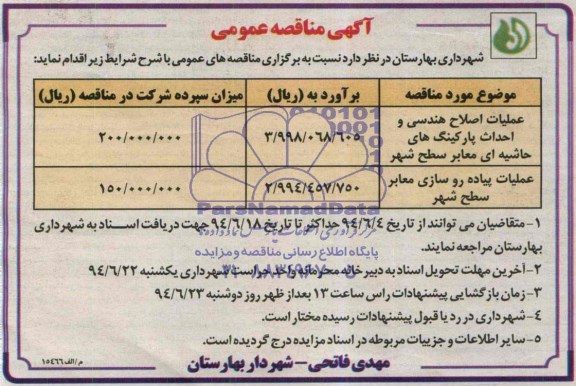 آگهی مناقصه عمومی
شهرداری بهارستان در نظر دارد نسبت به برگزاری مناقصه های عمومی با شرح شرایط زیر اقدام نماید:
موضوع مورد مناقصه
برآورد به (ریال)
میزان سپرده شرکت در مناقصه (ریال)
عملیات اصلاح هندسی و
احداث پارکینگ های
حاشیه ای معابر سطح شهر
۳/۹۹۸/۰۶۸/۶۰۵
۲۰۰/۰۰۰/۰۰۰
عملیات پیاده رو سازی معابر
سطح شهر
۲/۹۹۴/۴۵۷/۷۵۰
۱۵۰/۰۰۰/۰۰۰
ParsNamadData
۱-متقاضیان می توانند از تاریخ ۹۴/۶/۴ حداکثر تا تاریخ ۹۴/۶/۱۸ جهت دریافت اسناد به شهرداری
بهارستان مراجعه نمایند.
پایگاه اطلاع رسانی مناقصه و مزایده
۲-آخرین مهلت تحویل اسناد به دبیرخانه محرمانه واحد حراست شهرداری یکشنبه ۹۴/۶/۲۲
۳-زمان بازگشایی پیشنهادات راس ساعت ۱۳ بعداز ظهر روز دوشنبه ۹۴/۶/۲۳
۴-شهرداری در رد یا قبول پیشنهادات رسیده مختار است.
۵-سایر اطلاعات و جزییات مربوطه در اسناد مزایده درج گردیده است.
مهدی فاتحی-شهردار بهارستان
م/الف ۱۵۴۶۶